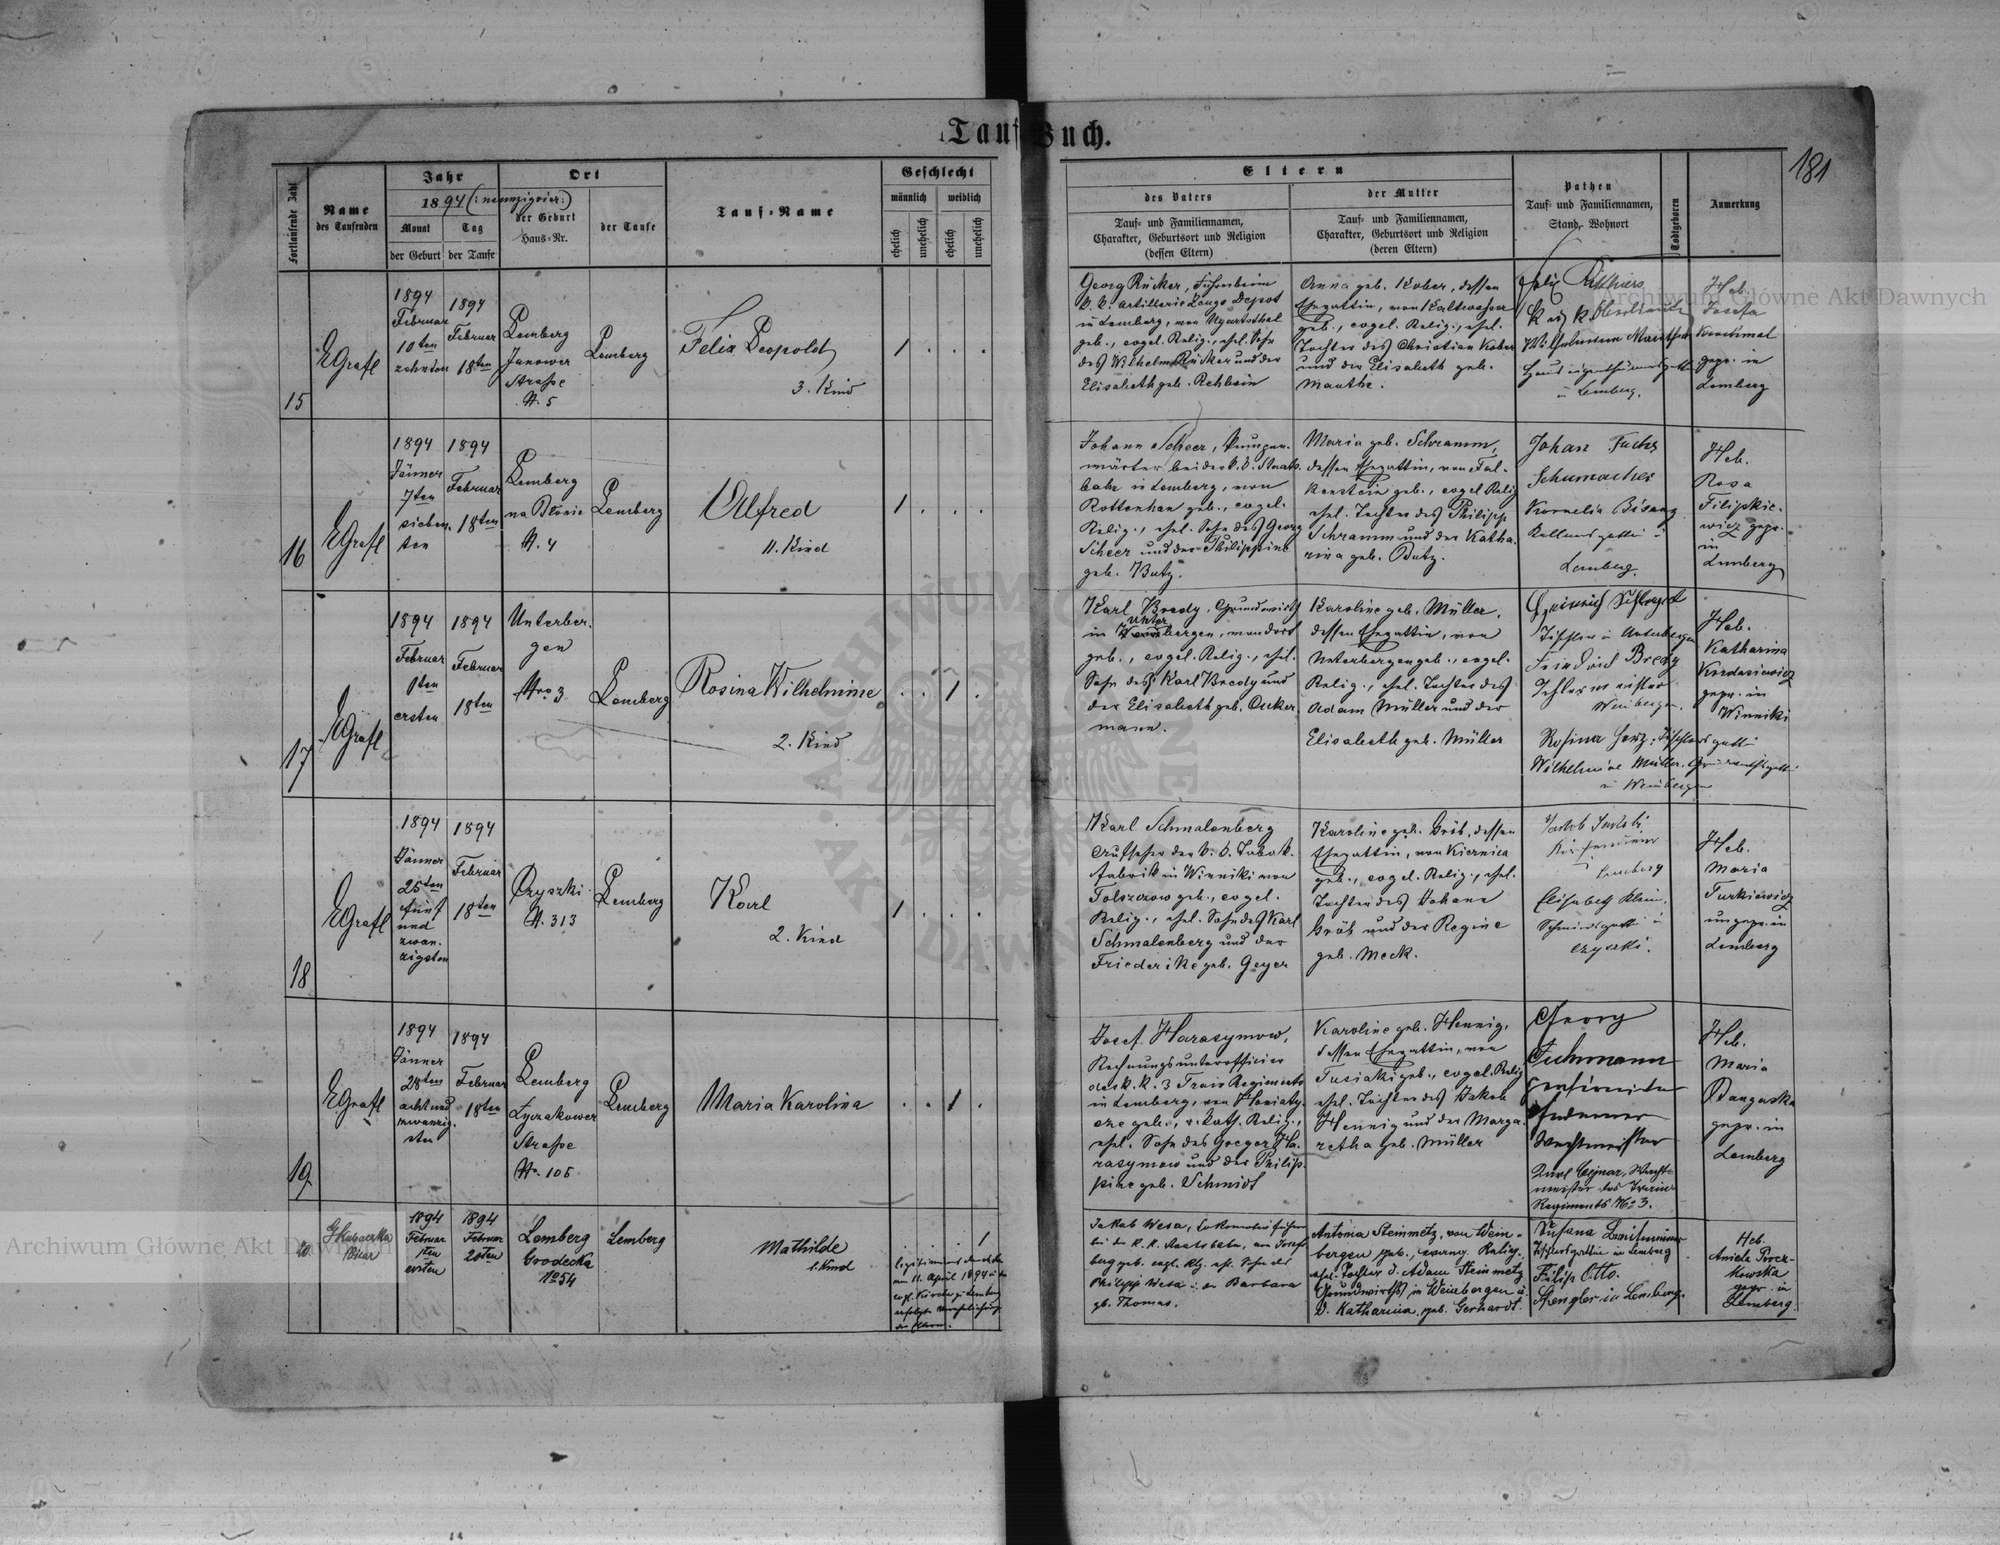 Tauf-Buch.
181
Fortlaufende Zahl
Name
des Taufenden
Jahr
1894 (: neunzigvier:)
Monat
Tag
der Geburt
der Taufe
Ort
der Geburt
Haus-Nr.
der Taufe
Tauf-Name
Geschlecht
männlich
weiblich
ehelich
unehelich
ehelich
unehelich
Eltern
des Vaters
Tauf- und Familiennamen,
Charakter, Geburtsort und Religion
(dessen Eltern)
der Mutter
Tauf- und Familiennamen,
Charakter, Geburtsort und Religion
(deren Eltern)
Pathen
Tauf- und Familiennamen,
Stand, Wohnort
Todtgeboren
Anmerkung
15
EGrafl
1894
Februar
10ten
zehnten
1894
Februar
18ten
Lemberg
Janower
Straße
N. 5
Lemberg
Felix Leopold
3. Kind
1
Georg Rücker,
k. k. Artillerie Zeugs Depot
in Lemberg, von Ugartsthal
geb., evgel. Relig., ehel. Sohn
des Wilhelm Rücker und der
Elisabeth geb. Rehbein
Anna geb. Kober, dessen
Ehegattin, von Kaltwasser
geb., evgel. Relig., ehel.
Tochter des Christian Kober
und der Elisabeth geb.
Manthe.
Felix
k und k
Wilhelmine Manthe
Hauseigenthümersgattin
in Lemberg.
Heb.
Josefa
gepr. in
Lemberg
16
EGrafl
1894
Jänner
7ten
sieben-
ten
1894
Februar
18ten
Lemberg
na Błonie
N. 4
Lemberg
Alfred
11. Kind
1
Johann Scheer, Pumpen-
wärter bei der k. k. Staats-
bahn in Lemberg, von
Rottenhan geb., evgel.
Relig., ehel. Sohn des Georg
Scheer und der Philippine
geb. Butz.
Maria geb. Schramm,
dessen Ehegattin, von Fal-
kenstein geb., evgel Relig
ehel. Tochter des Philipp
Schramm und der Katha-
rina geb. Butz.
Johan Fuchs
Schumacher
Kornelia Bisanz
Lemberg.
Heb.
Rosa
Filipkie-
wicz gepr.
in
Lemberg
17
EGrafl
1894
Februar
1ten
ersten
1894
Februar
18ten
Unterber-
gen
Nro 3
Lemberg
Rosina Wilhelmine
2. Kind
1
Karl Bredy, Grundwirth
Unter
in bergen, von dort
geb., evgel. Relig., ehel.
Sohn des Karl Bredy und
der Elisabeth geb. Acker-
mann.
Karoline geb. Müller,
dessen Ehegattin, von
Unterbergen geb., evgel.
Relig., ehel. Tochter des
Adam Müller und der
Elisabeth geb. Müller
Heinrich
Tischler in Unterbergen
Friedrich Bredy
Weinbergen.
Rosina Herz, Tischlersgattin
Wilhelmine Müller, Grundwirthsgattin
in Weinbergen
Heb.
Katharina
gepr. in
Winniki
18
EGrafl
1894
Jänner
25ten
fünf
und
zwan-
zigsten
1894
Februar
18ten
Lemberg
Czyszki
N. 313
Karl
2. Kind
1
Karl Schmalenberg
Aufseher der k. k. Tabak-
fabrik in Winniki von
Falszerow geb., evgel.
Relig., ehel. Sohn des Karl
Schmalenberg und der
Friederike geb. Geyer
Karoline geb. Gröb, dessen
Ehegattin, von Kiernica
geb., evgel. Relig., ehel.
Tochter des Johann
Gröb und der Regine
geb. Meck.
Jakob
Kirchendiener
Lemberg
Elisabeth Klein,
Schmiedsgattin in
Czyszki.
Heb.
Maria
Turkiewicz
ungepr. in
Lemberg
19
EGrafl
1894
Jänner
28ten
acht und
zwanzig-
sten
1894
Februar
18ten
Lemberg
Łyczakower
Straße
N. 105
Lemberg
Maria Karolina
1
Josef Harasymow,
Rechnungsunterofficier
des k. k. 3 Train Regiments
in Lemberg, von Honiaty-
cze geb., r. kath. Relig.,
ehel. Sohn des Gregor Ha-
rasymow und der Philip-
pine geb. Schmidt
Karoline geb. Hennig,
dessen Ehegattin, von
Tusiaki geb., evgel. Relig
ehel. Tochter des Jakob
Hennig und der Marga-
retha geb. Müller
Georg
Fuhrmann
pensionirter
Wachtmeister
Karl Cejnar, Wacht-
meister des Train
Regiments No 3.
Heb.
Maria
gepr. in
Lemberg
20.
Vikar
1894
Februar
1ten
ersten
1894
Februar
20ten
Lemberg
Grodecka
No 54
Lemberg
Mathilde
1. Kind
1
am 11. April 1894 in der
evgl. Kirche zu Lemberg
erfolgte Verehelichung
der Eltern.
Jakob Wesa, Lokomotivführer
bei der k. k. Staatsbahn, von Josef-
berg geb. evgl. Rlg. ehl. Sohn des
Philipp Wesa u. der Barbara
gb. Thomas.
Antonia Steinmetz, von Wein-
bergen geb., evang. Relig.
ehel. Tochter d. Adam Steinmetz
Grundwirths in Weinbergen u.
d. Katharina, geb. Gerhardt.
Susana
Tischlersgattin in Lemberg
Filip Otto.
Spengler in Lemberg.
Heb.
Aniela
gepr. in
Lemberg.
Archiwum Główne Akt Dawnych
Archiwum Główne Akt Dawnych
ARCHIWUM GŁÓWNE AKT DAWNYCH